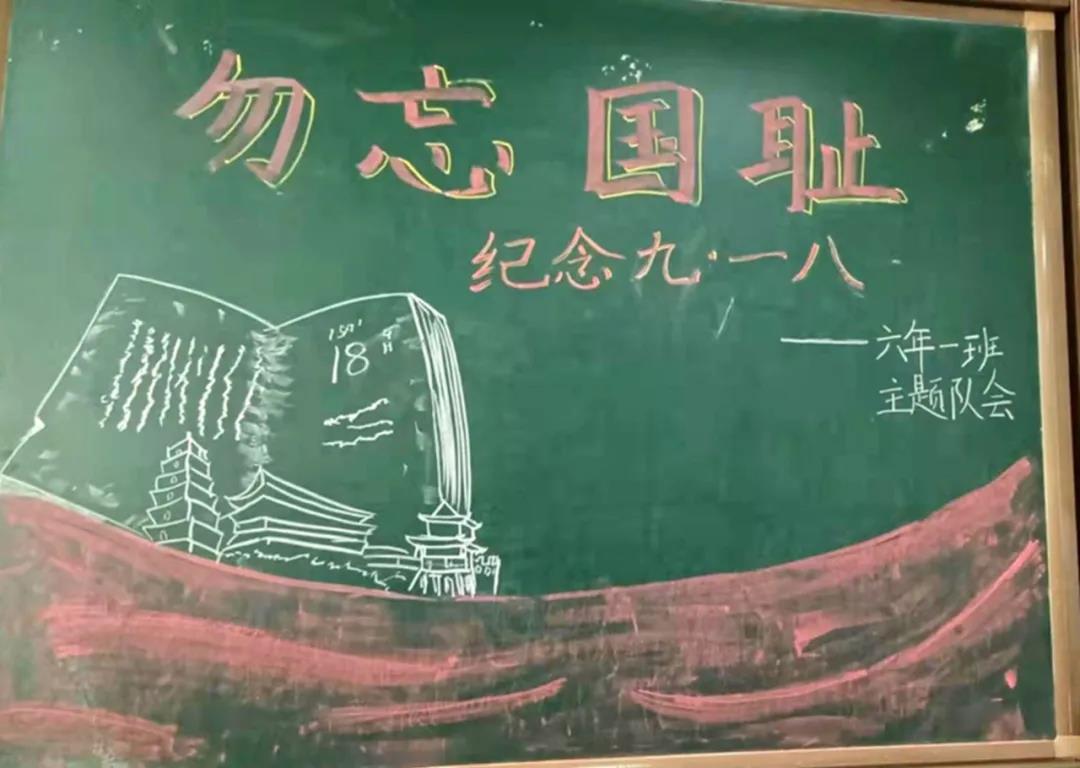 勿忘国耻
纪念九·一八
——六年一班
主题队会
18